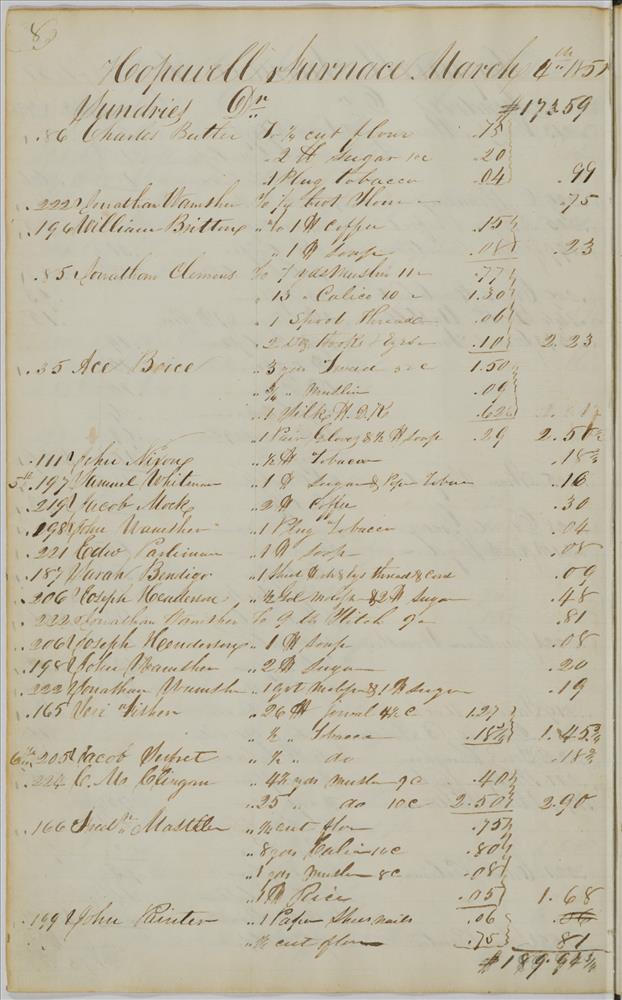 89
Hopewell Furnace March 4th 185
Sundries Dr $173.59
.86 Charles Butler To ¼ cut flour .75
.. 2 lb sugar 10c .20
.. 1 Plug tobacco .04 .99
.222 Jonathan Wamsher To ¼ Cwt flour .75
.196 William Britton .. To 1 lb Coffee .15
.. 1 lb Soap .08 .23
.85 Jonathan Clemens To 7 yds Muslin 11c .77
.. 13 .. Calico 10c 1.30
.. 1 Spool Thread .06
.. 2 Doz Hooks & Eyes .10 2.23
.35 Ace Boice .. 3 yds Tweed 1.50
.. ¾ .. Muslin .09
.. 1 Silk H. Dk .62½
.. 1 Pair Gloves & ½ lb Soap .29 2.50½
.111 John Nixon .. ½ lb Tobacco .18¾
5th .197 Samuel Whitman .. 1 lb Sugar & Paper Tobacco .16
.219 Jacob Mock .. 2 lb Coffee .30
.198 John Wamsher .. 1 Plug Tobacco .04
.221 Parliman .. 1 lb Soap .08
.187 Sarah Bendigo .. 1 thread & Cord .09
.206 Joseph Henderson .. ½ Gol Molss & 2 lb Sugar .48
.222 Jonathan Wamsher To 9 lb Flitch 9c .81
.206 Joseph Henderson .. 1 lb Soap .08
.198 John Wamsher .. 2 lb Sugar .20
.222 Jonathan Wamsher .. 1 qrt Molss & 1 lb Sugar .19
.165 Levi Fisher .. 26 lb 1.27
.. ½ .. Tobacco .18¾ 1.45¾
6th .205 Jacob .. ½ .. do .18¾
.224 C. M. Clingan .. 4½ yds Muslin 9c .40
.. 25 .. do 10c 2.50 2.90
.166 Mastller .. ¼ cut flour .75
.. 8 yds Calico 10c .80
.. 1 yds Muslin 8c .08
.. 1 lb Rice .05 1.68
.199 John Painter .. 1 Paper Shoe nails .06 .06
.. ¼ cut flour .75 81
$189.94¾